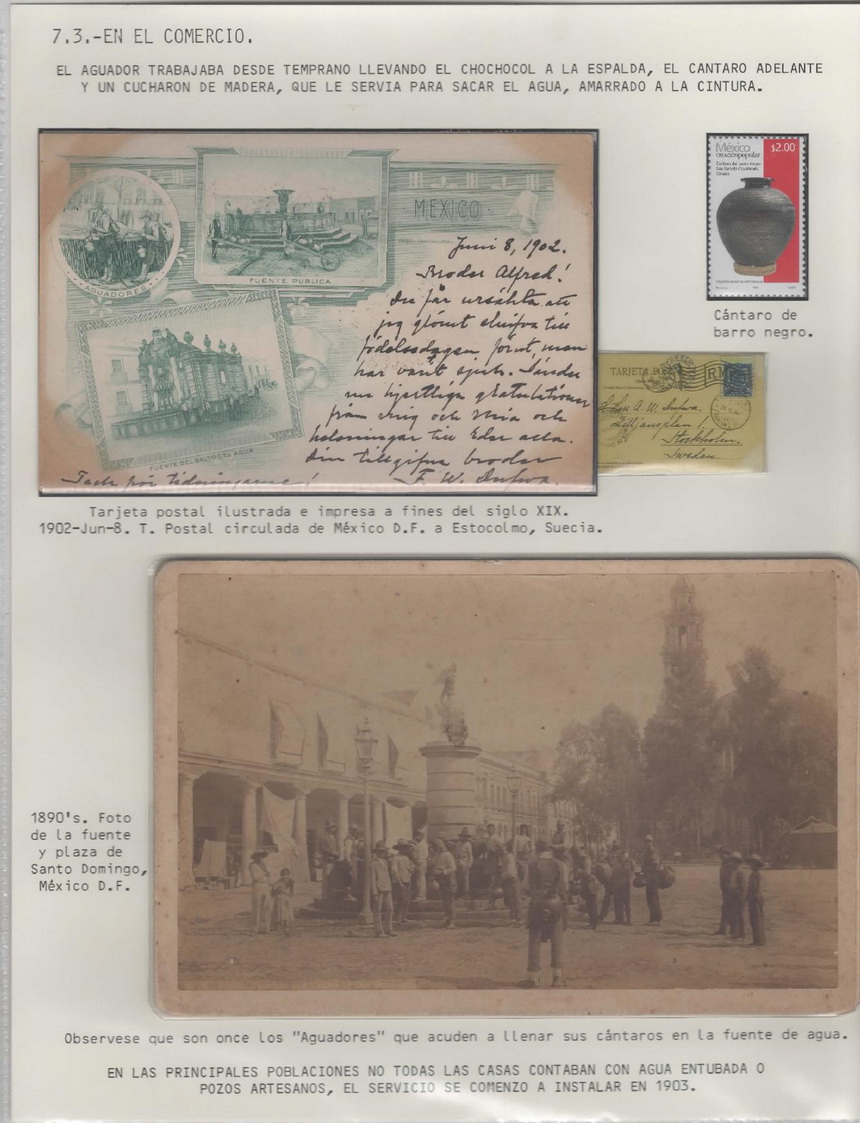 7.3.-EN EL COMERCIO.
EL AGUADOR TRABAJABA DESDE TEMPRANO LLEVANDO EL CHOCHOCOL A LA ESPALDA, EL CANTARO ADELANTE
Y UN CUCHARON DE MADERA, QUE LE SERVIA PARA SACAR EL AGUA, AMARRADO A LA CINTURA.
AGUADORES
FUENTE PUBLICA
MEXICO
FUENTE DEL SALTO DEL AGUA
Juni 8, 1902.
Broder Alfred!
Du får ursäkta att
jag glömt skrifva till
födelsedagen förut, men
har varit
hjertliga gratulationer
från mig och Maria och
helsningar till Eder alla.
Din tillgifna broder
F. W.
Tack för tidningarne!
México
creación popular
$2.00
Cántaro de
barro negro.
TARJETA
A. W.
Stockholm.
Sweden.
Tarjeta postal ilustrada e impresa a fines del siglo XIX.
1902-Jun-8. T. Postal circulada de México D.F. a Estocolmo, Suecia.
1890's. Foto
de la fuente
y plaza de
Santo Domingo,
México D.F.
Observese que son once los "Aguadores" que acuden a llenar sus cántaros en la fuente de agua.
EN LAS PRINCIPALES POBLACIONES NO TODAS LAS CASAS CONTABAN CON AGUA ENTUBADA O
POZOS ARTESANOS, EL SERVICIO SE COMENZO A INSTALAR EN 1903.